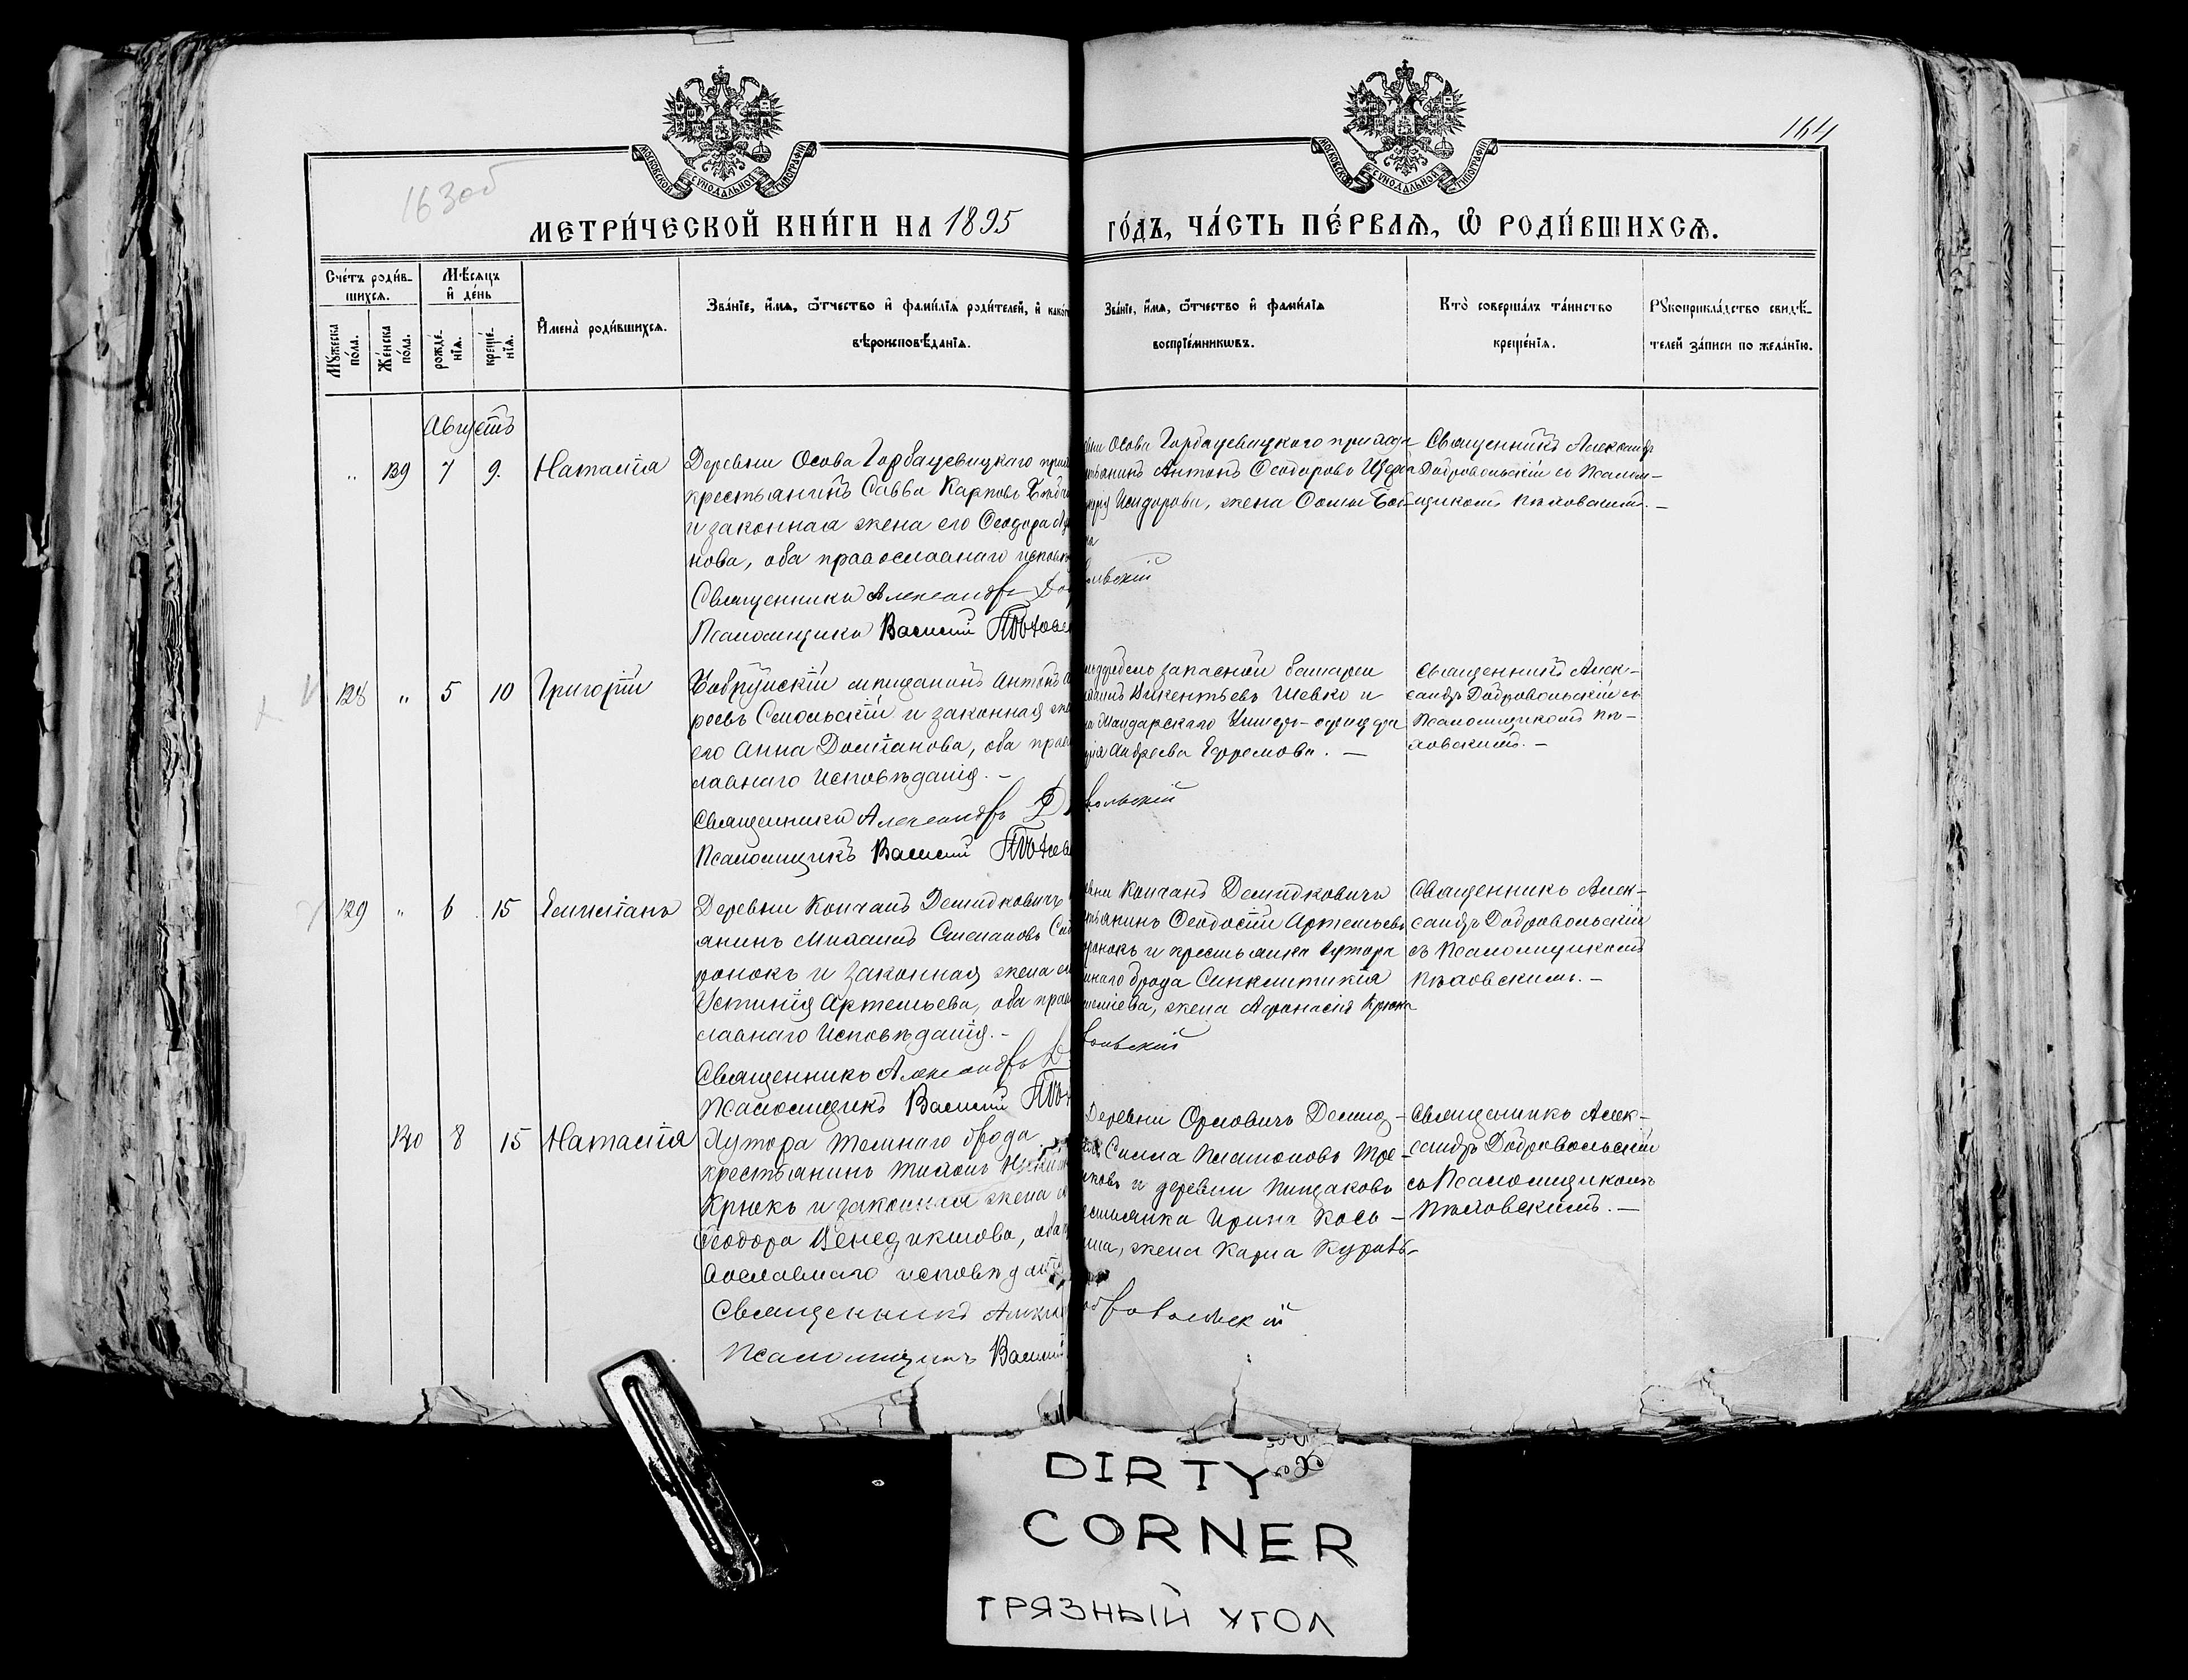 164
163об
МОСКОВСКОЙ СѴНОДАЛЬНОЙ ТИПОГРАФІИ
МОСКОВСКОЙ СѴНОДАЛЬНОЙ ТИПОГРАФІИ
МЕТРИ́ЧЕСКОЙ КНИ́ГИ НА 1895
ГО́ДЪ, ЧА́СТЬ ПЕ́РВАѦ, Ѡ҆ РОДИ́ВШИХСѦ.
Сче́тъ роди́в-
шихсѧ.
Мꙋ́жеска по́ла.
Же́нска по́ла.
Мѣ́сѧцъ
и҆ де́нь
рожде́-
нїѧ.
креще́-
нїѧ.
И҆мена̀ роди́вшихсѧ.
Зва́нїе, и҆́мѧ, ѻ҆́тчество и҆ фами́лїѧ роди́телей, и҆ како́г
вѣроисповѣ́данїѧ.
Зва́нїе, и҆́мѧ, ѻ҆́тчество и҆ фами́лїѧ
воспрїе́мникѡвъ.
Кто̀ соверша́лъ та́инство
креще́нїѧ.
Рꙋкоприкла́дство свидѣ́-
телей за́писи по жела́нїю.
Августъ
„ 139 7 9. Наталія
Деревни Осова Горбацевицкаго при
крестьянинъ Савва Карповъ
и законная жена его Ѳеодора
нова, оба православнаго испов
Священникъ Александръ До
Псаломщикъ Василій Пѣховс
Осова Горбацевицкаго прихода
Антонъ Ѳеодоровъ
Исидорова, жена Ѳомы
на
ольскій
Священникъ Александръ
Добровольскій съ Псалом-
щикомъ Пѣховскимъ. —
128 „ 5 10 Григорій
Бобруйскій мѣщанинъ Антонъ
реевъ Смольскій и законная же
его Анна Долманова, оба прав
славнаго исповѣданія. —
Священникъ Александръ Д
Псаломщикъ Василій Пѣхов
запасной батареи
Викентьевъ Шевко и
Унтеръ-офицера
Андреева Ефремова. —
вольскій
Священникъ Алек-
сандръ Добровольскій съ
Псаломщикомъ Пѣ-
ховскимъ. —
129 „ 6 15 Емиліанъ
Деревни Копчанъ Демидковичъ
янинъ Михаилъ Степановъ
ронокъ и законная жена ег
Устинія Артемьева, оба прав
славнаго исповѣданія. —
Священникъ Александръ Д
Псаломщикъ Василій Пѣх
вни Копчанъ Демидковичъ
тьянинъ Ѳеодосій Артемьевъ
ронокъ и крестьянка хутора
мнаго брода Синклитикія
жена Афанасія Крюка
вольскій
Священникъ Алек-
сандръ Добровольскій
съ Псаломщикомъ
Пѣховскимъ. —
140 8 15 Наталія
Хутора Темнаго брода
крестьянинъ Тихонъ
Крюкъ и законная жена е
Ѳеодора Венедиктова, оба
вославнаго исповѣданія
Священникъ Алекса
Псаломщикъ Василій
Деревни Орловичъ Демид-
Силла Платоновъ
и деревни Пищаковъ
естьянка Ирина Кось-
мина, жена Карпа
обровольскій
Священникъ Алек-
сандръ Добровольскій
съ Псаломщикомъ
Пѣховскимъ. —
DIRTY
CORNER
ГРЯЗНЫЙ УГОЛ